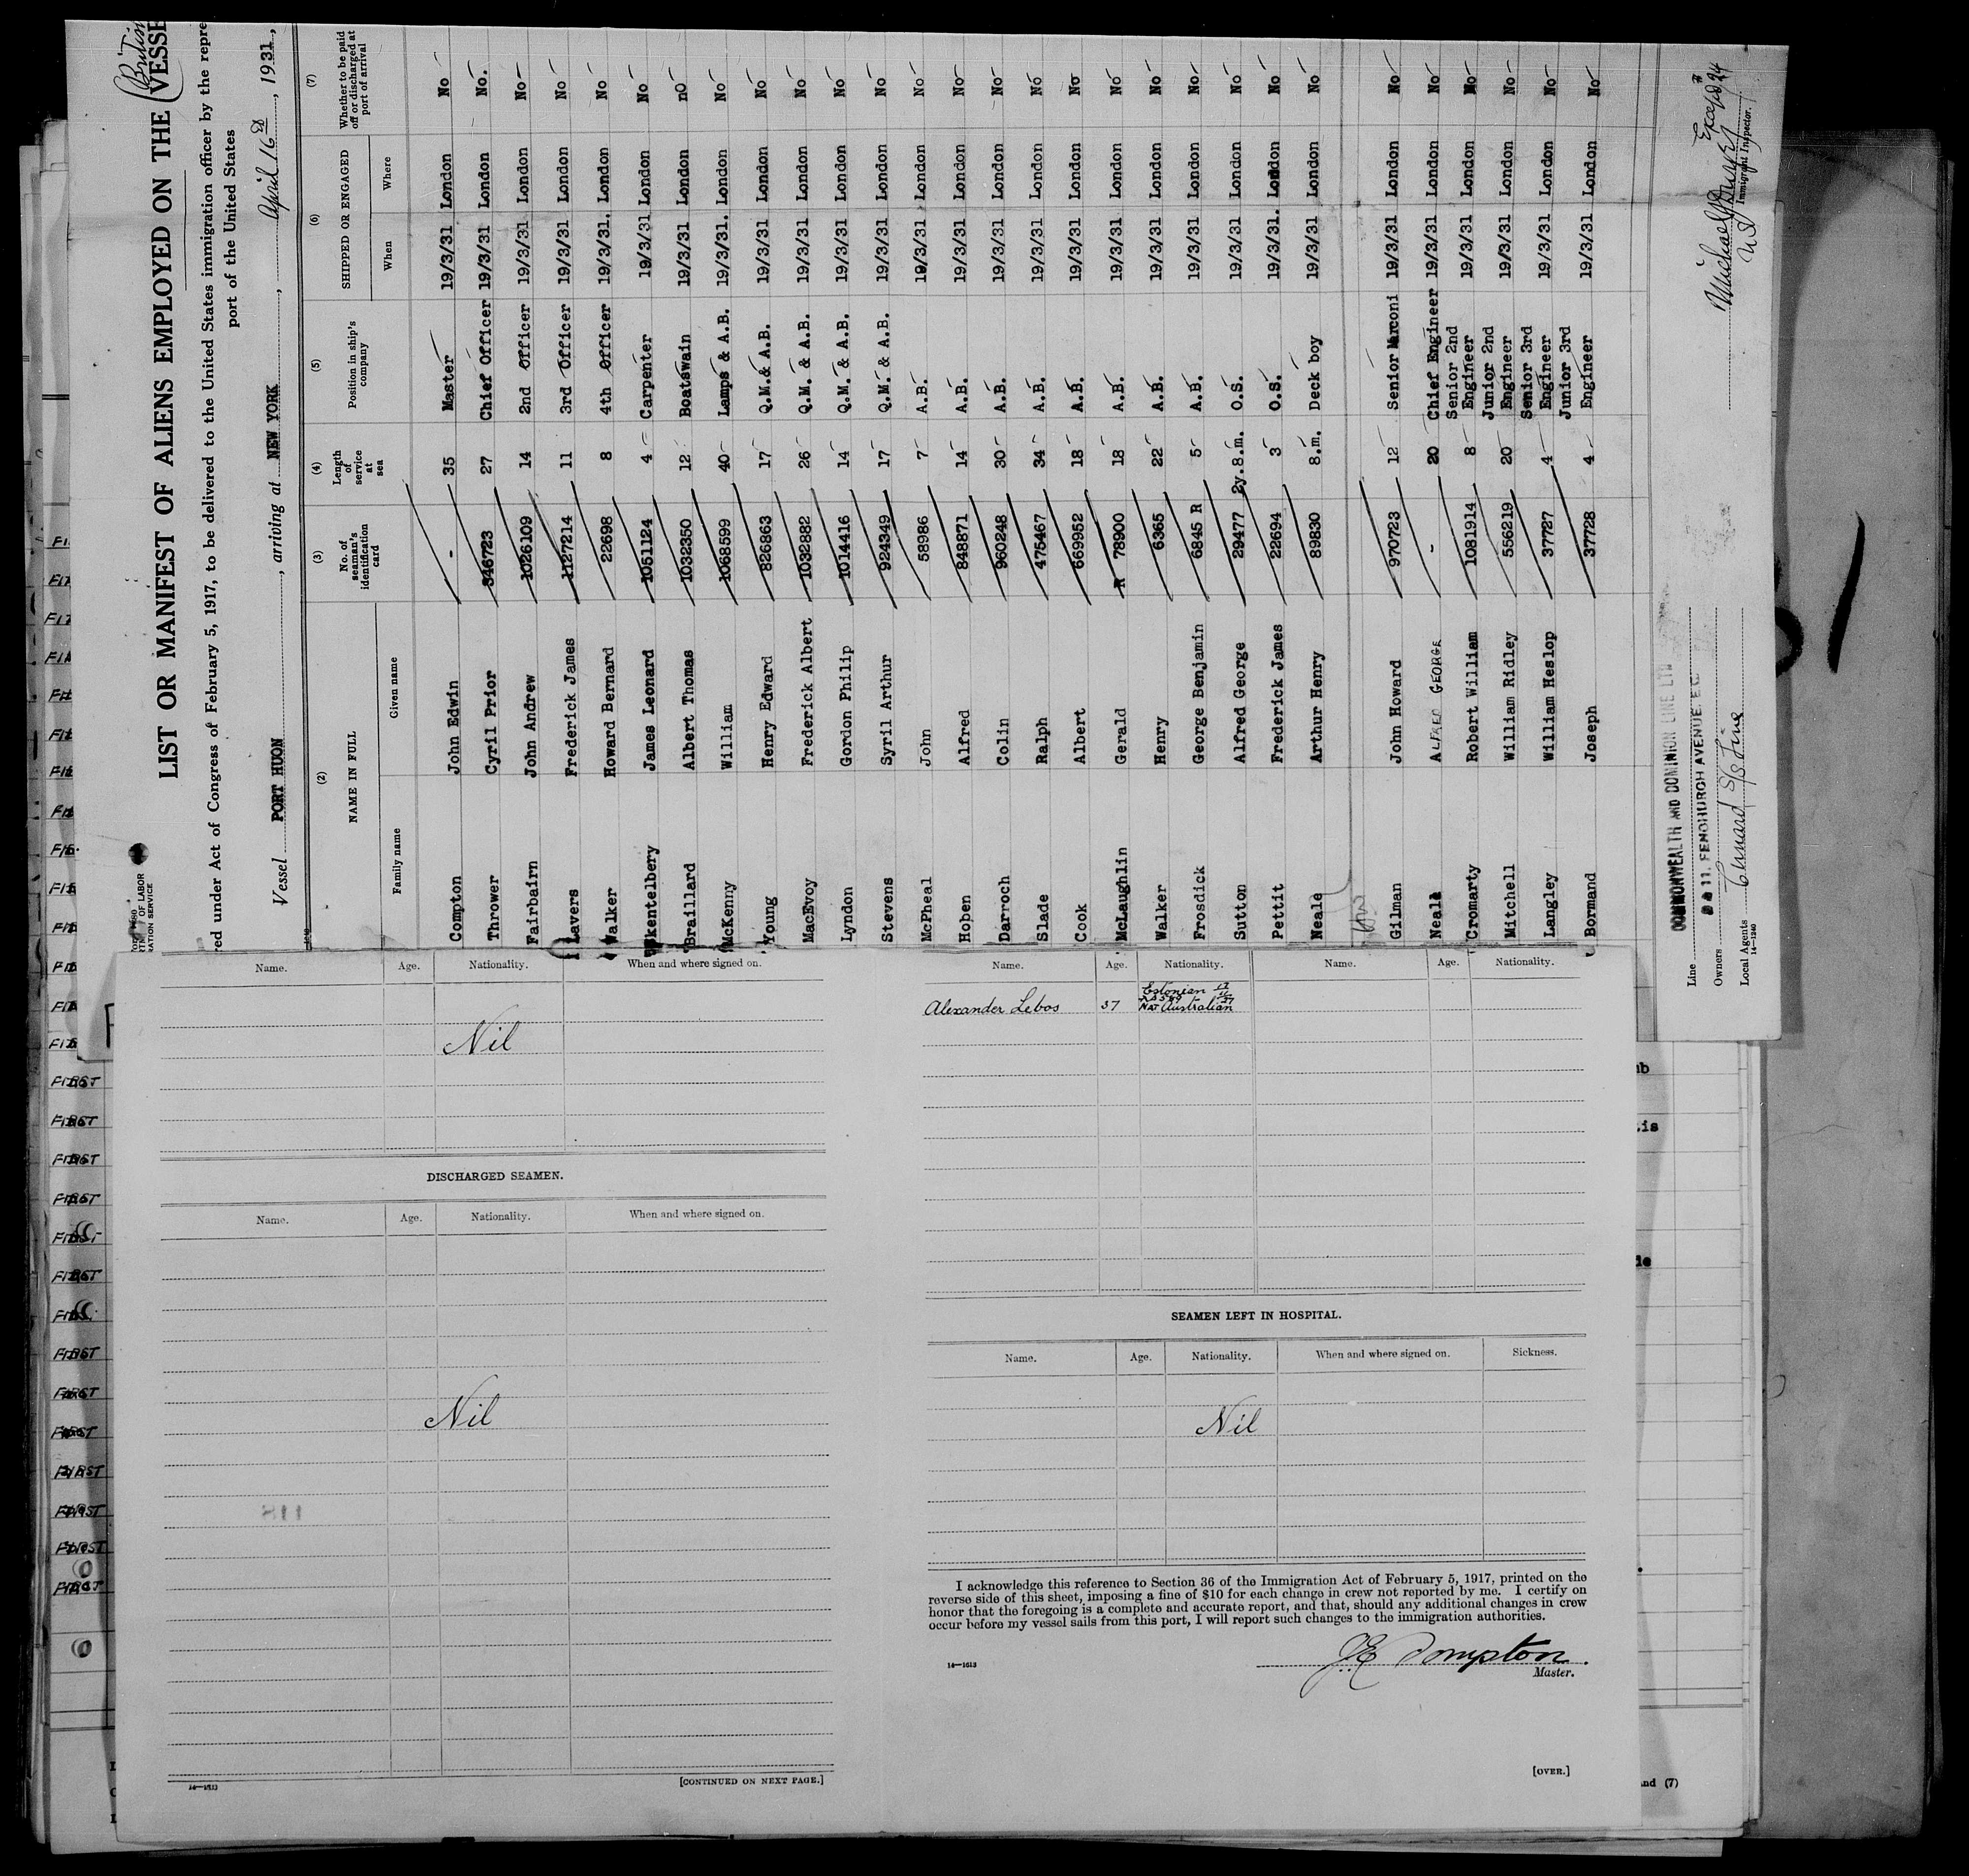 LIST OR MANIFEST OF ALIENS EMPLOYED ON THE VESSE
(British
red under Act of Congress of February 5, 1917, to be delivered to the United States immigration officer by the repre
port of the United States
Vessel PORT HUON, arriving at NEW YORK, April 16th, 1931,
(2) (3) (4) (5) (6) (7)
NAME IN FULL No. of seaman's identification card Length of service at sea Position in ship's company SHIPPED OR ENGAGED Whether to be paid off or discharged at port of arrival
Family name Given name When Where
Compton John Edwin - 35 Master 19/3/31 London No
Thrower Cyril Prior 346723 27 Chief Officer 19/3/31 London No.
Fairbairn John Andrew 1026109 14 2nd Officer 19/3/31 London No
Lavers Frederick James 1127214 11 3rd Officer 19/3/31 London No
Walker Howard Bernard 22698 8 4th Officer 19/3/31. London No
Skentelbery James Leonard 1051124 4 Carpenter 19/3/31 London No
Braillard Albert Thomas 1032350 12 Boatswain 19/3/31 London nO
McKenny William 1068599 40 Lamps & A.B. 19/3/31. London No
Young Henry Edward 826863 17 Q.M.& A.B. 19/3/31 London No
MacEvoy Frederick Albert 1032882 26 Q.M. & A.B. 19/3/31 London No
Lyndon Gordon Philip 1014416 14 Q.M. & A.B. 19/3/31 London No
Stevens Syril Arthur 924349 17 Q.M. & A.B. 19/3/31 London No
McPheal John 58986 7 A.B. 19/3/31 London No
Hoben Alfred 848871 14 A.B. 19/3/31 London No
Darroch Colin 960248 30 A.B. 19/3/31 London No
Slade Ralph 475467 34 A.B. 19/3/31 London No
Cook Albert 669952 18 A.B. 19/3/31 London No
McLaughlin Gerald R 78900 18 A.B. 19/3/31 London No
Walker Henry 6365 22 A.B. 19/3/31 London No
Frosdick George Benjamin 6845 R 5 A.B. 19/3/31 London No
Sutton Alfred George 29477 2y.8.m. O.S. 19/3/31 London No
Pettit Frederick James 22694 3 O.S. 19/3/31. London No
Neale Arthur Henry 89830 8.m. Deck boy 19/3/31 London No
Gilman John Howard 970723 12 Senior Marconi 19/3/31 London No
Neale ALFRED GEORGE - 20 Chief Engineer 19/3/31 London No
Cromarty Robert William 1081914 8 Senior 2nd Engineer 19/3/31 London No
Mitchell William Ridley 556219 20 Junior 2nd Engineer 19/3/31 London No
Langley William Heslop 37727 4 Senior 3rd Engineer 19/3/31 London No
Bormand Joseph 37728 4 Junior 3rd Engineer 19/3/31 London No
Line COMMONWEALTH AND DOMINION LINE LTD
Owners 9 & 11. FENCHURCH AVENUE. E.C.
Local Agents Cunard S/S Line
14—1240
Immigrant Inspector.
Name. Age. Nationality. When and where signed on.
Nil
DISCHARGED SEAMEN.
Name. Age. Nationality. When and where signed on.
Nil
811
14—1613
[CONTINUED ON NEXT PAGE.]
Name. Age. Nationality. Name. Age. Nationality.
Alexander Lebos 37 Estonian
NAT Australian
SEAMEN LEFT IN HOSPITAL.
Name. Age. Nationality. When and where signed on. Sickness.
Nil
I acknowledge this reference to Section 36 of the Immigration Act of February 5, 1917, printed on the
reverse side of this sheet, imposing a fine of $10 for each change in crew not reported by me. I certify on
honor that the foregoing is a complete and accurate report, and that, should any additional changes in crew
occur before my vessel sails from this port, I will report such changes to the immigration authorities.
J E Compton
Master.
14—1613
[OVER.]
and (7)